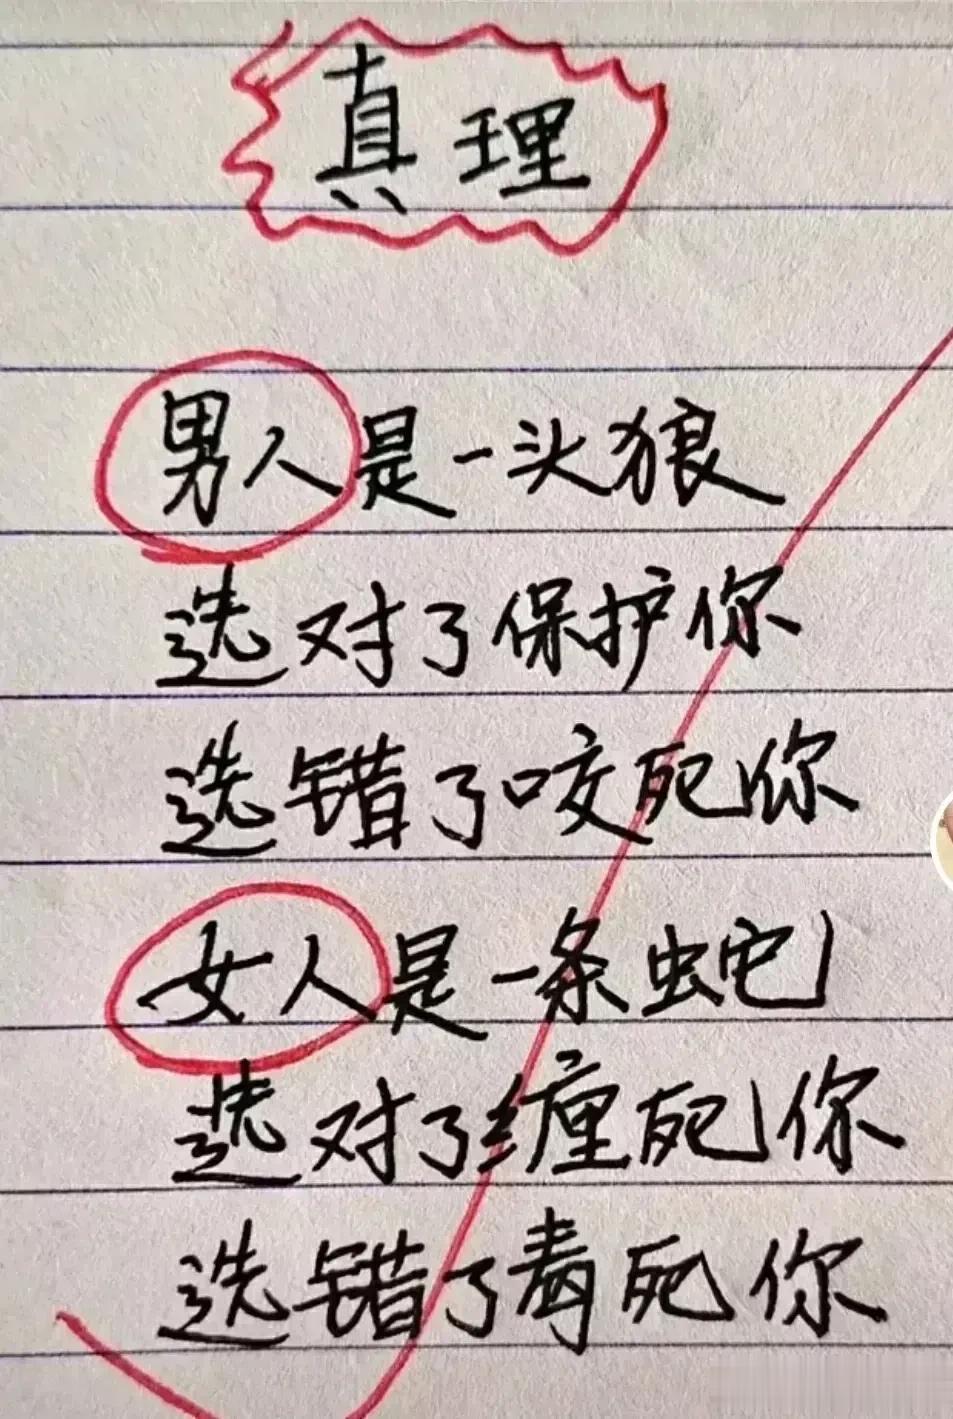 真理
男人是一头狼
选对了保护你
选错了咬死你
女人是一条蛇
选对了缠死你
选错了毒死你